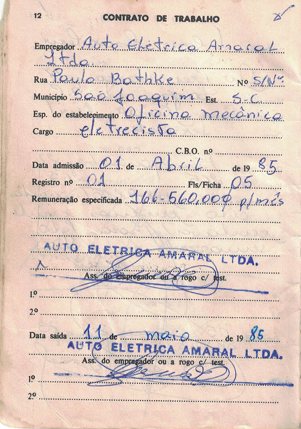 12 CONTRATO DE TRABALHO
Empregador Auto Eletrica Amaral
Ltda
Rua Paulo Bathke Nº S/Nº
Município São Joaquim Est. S-C
Esp. do estabelecimento Oficina mecânica
Cargo eletrecista
C.B.O. nº
Data admissão 01 de Abril de 19 85
Registro nº 01 Fls/Ficha 05
Remuneração especificada 166-560,00 p/mês
AUTO ELETRICA AMARAL LTDA.
Ass. do empregador ou a rogo c/ test.
1º
2º
Data saída 11 de maio de 19 85
AUTO ELETRICA AMARAL LTDA.
Ass. do empregador ou a rogo c/ test.
1º
2º